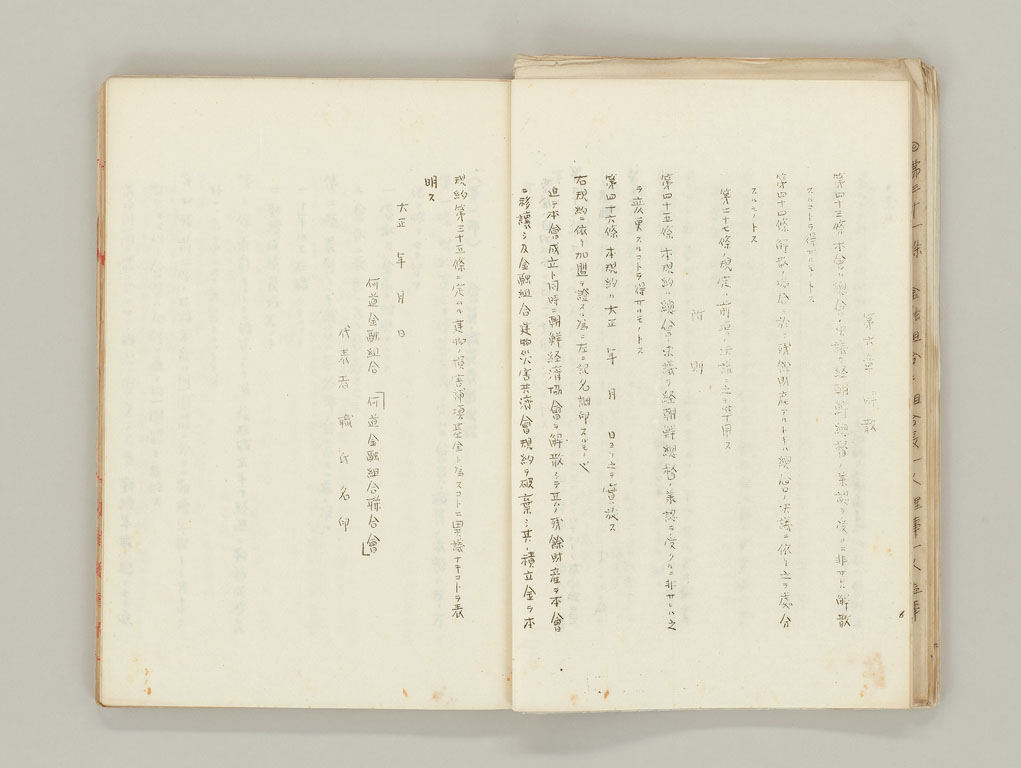 第六章 解散
第四十三條 本會ハ總會ノ決議ヲ経朝鮮總督ノ承認ヲ受クルニ非サレハ解散
スルコトヲ得サルモノトス
第四十四條 解散ノ場合ニ於テ残餘財産アルトキハ總會ノ決議ニ依リ之ヲ處分
スルモノトス
第二十七條ノ規定ハ前項ノ決議ニ之ヲ準用ス
附則
第四十五條 本規約ハ總會ノ決議ヲ経朝鮮總督ノ承認ヲ受クルニ非サレハ之
ヲ変更スルコトヲ得サルモノトス
第四十六條 本規約ハ大正 年 月 日ヨリ之ヲ實施ス
右規約ニ依リ加盟ヲ證スル為ニ左ニ記名調印スルモノ也
追テ本會成立ト同時ニ朝鮮経済協會ヲ解散シテ其ノ残餘財産ヲ本會
ニ移譲シ及金融組合建物災害共済會規約ヲ破棄シ其ノ積立金ヲ本
規約第三十五條ニ定ムル建物ノ損害補塡基金ト為スコトニ異議ナキコトヲ表
明ス
大正 年 月 日
何道金融組合「何道金融組合聯合會」
代表者 職 氏 名 印